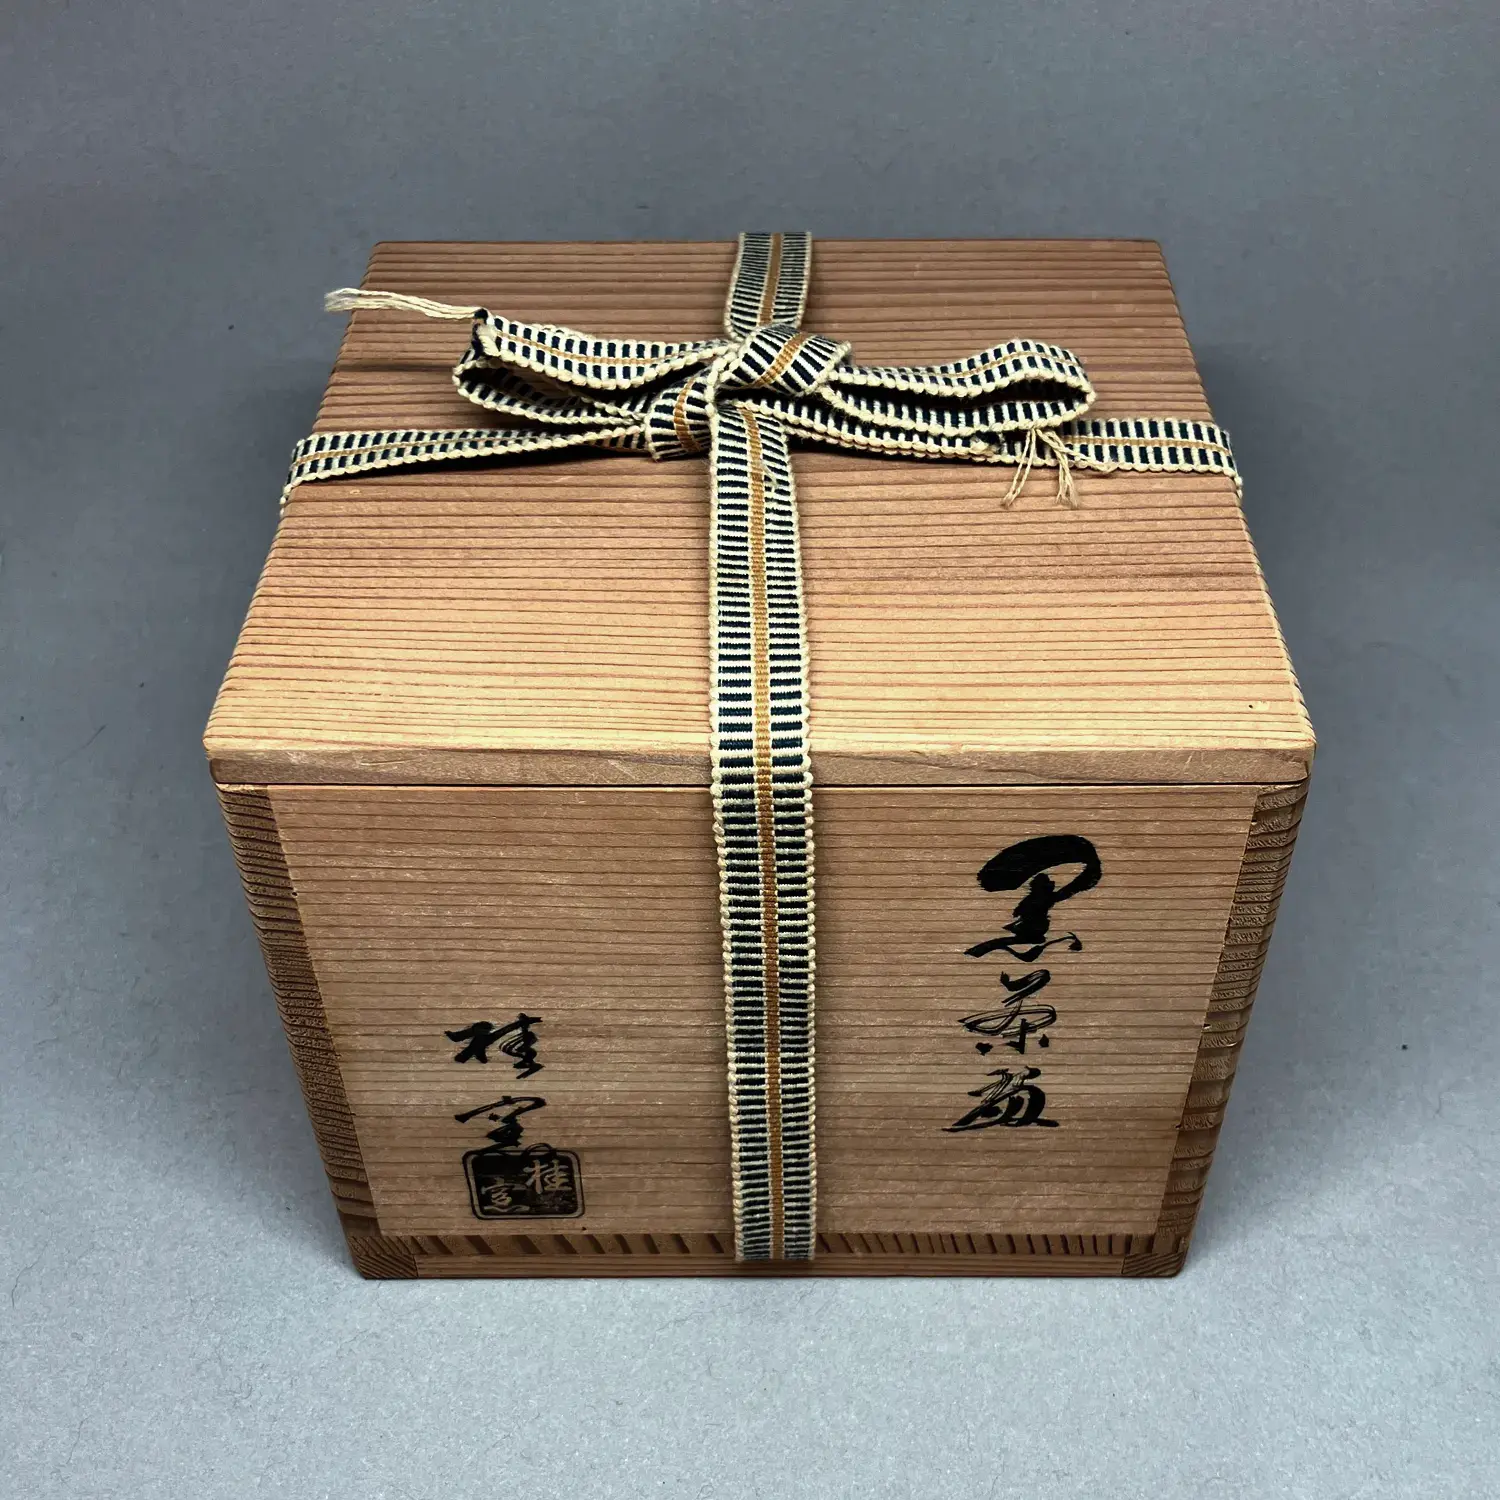 黒茶碗
桂窯
桂窯